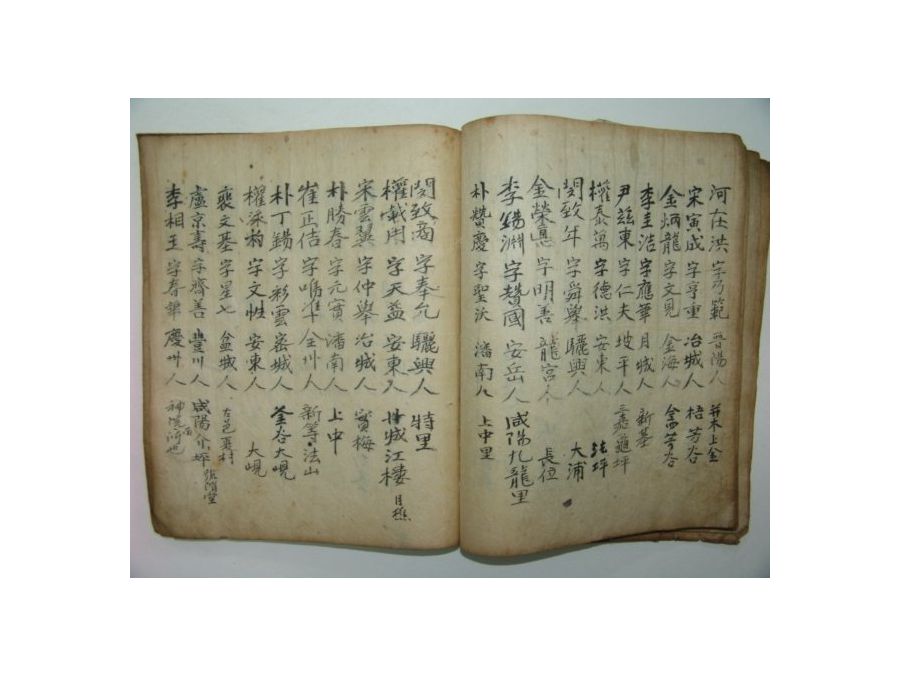 河在洪 字乃範 晉陽人 並木上仝
宋寅成 字亨重 冶城人 梧芳谷
金炳龍 字文見 金海人 芳谷
李圭浩 字應華 月城人 新基
尹玆東 字仁夫 坡平人 龜坪
權泰萬 字德洪 安東人 坪
閔致年 字舜舉 驪興人 大浦
金榮熹 字明善 龍宮人 長
李錫淵 字贊國 安岳人 咸陽九龍里
朴贊慶 字聖汝 潘南人 上中里
閔致商 字奉允 驪興人 特里
權載用 字天益 安東人 丹城江樓 目樵
宋雲翼 字仲舉 冶城人 寶梅
朴勝春 字元實 潘南人 上中
崔正佶 字鳴隼 仝州人 新等法山
朴丁錫 字彩雲 密城人 釜谷大峴
權 字文性 安東人 大峴
裵文基 字星七 盆城人 右邑 村
盧京壽 字齊善 豊川人 咸陽介坪
李相王 字春 慶州人